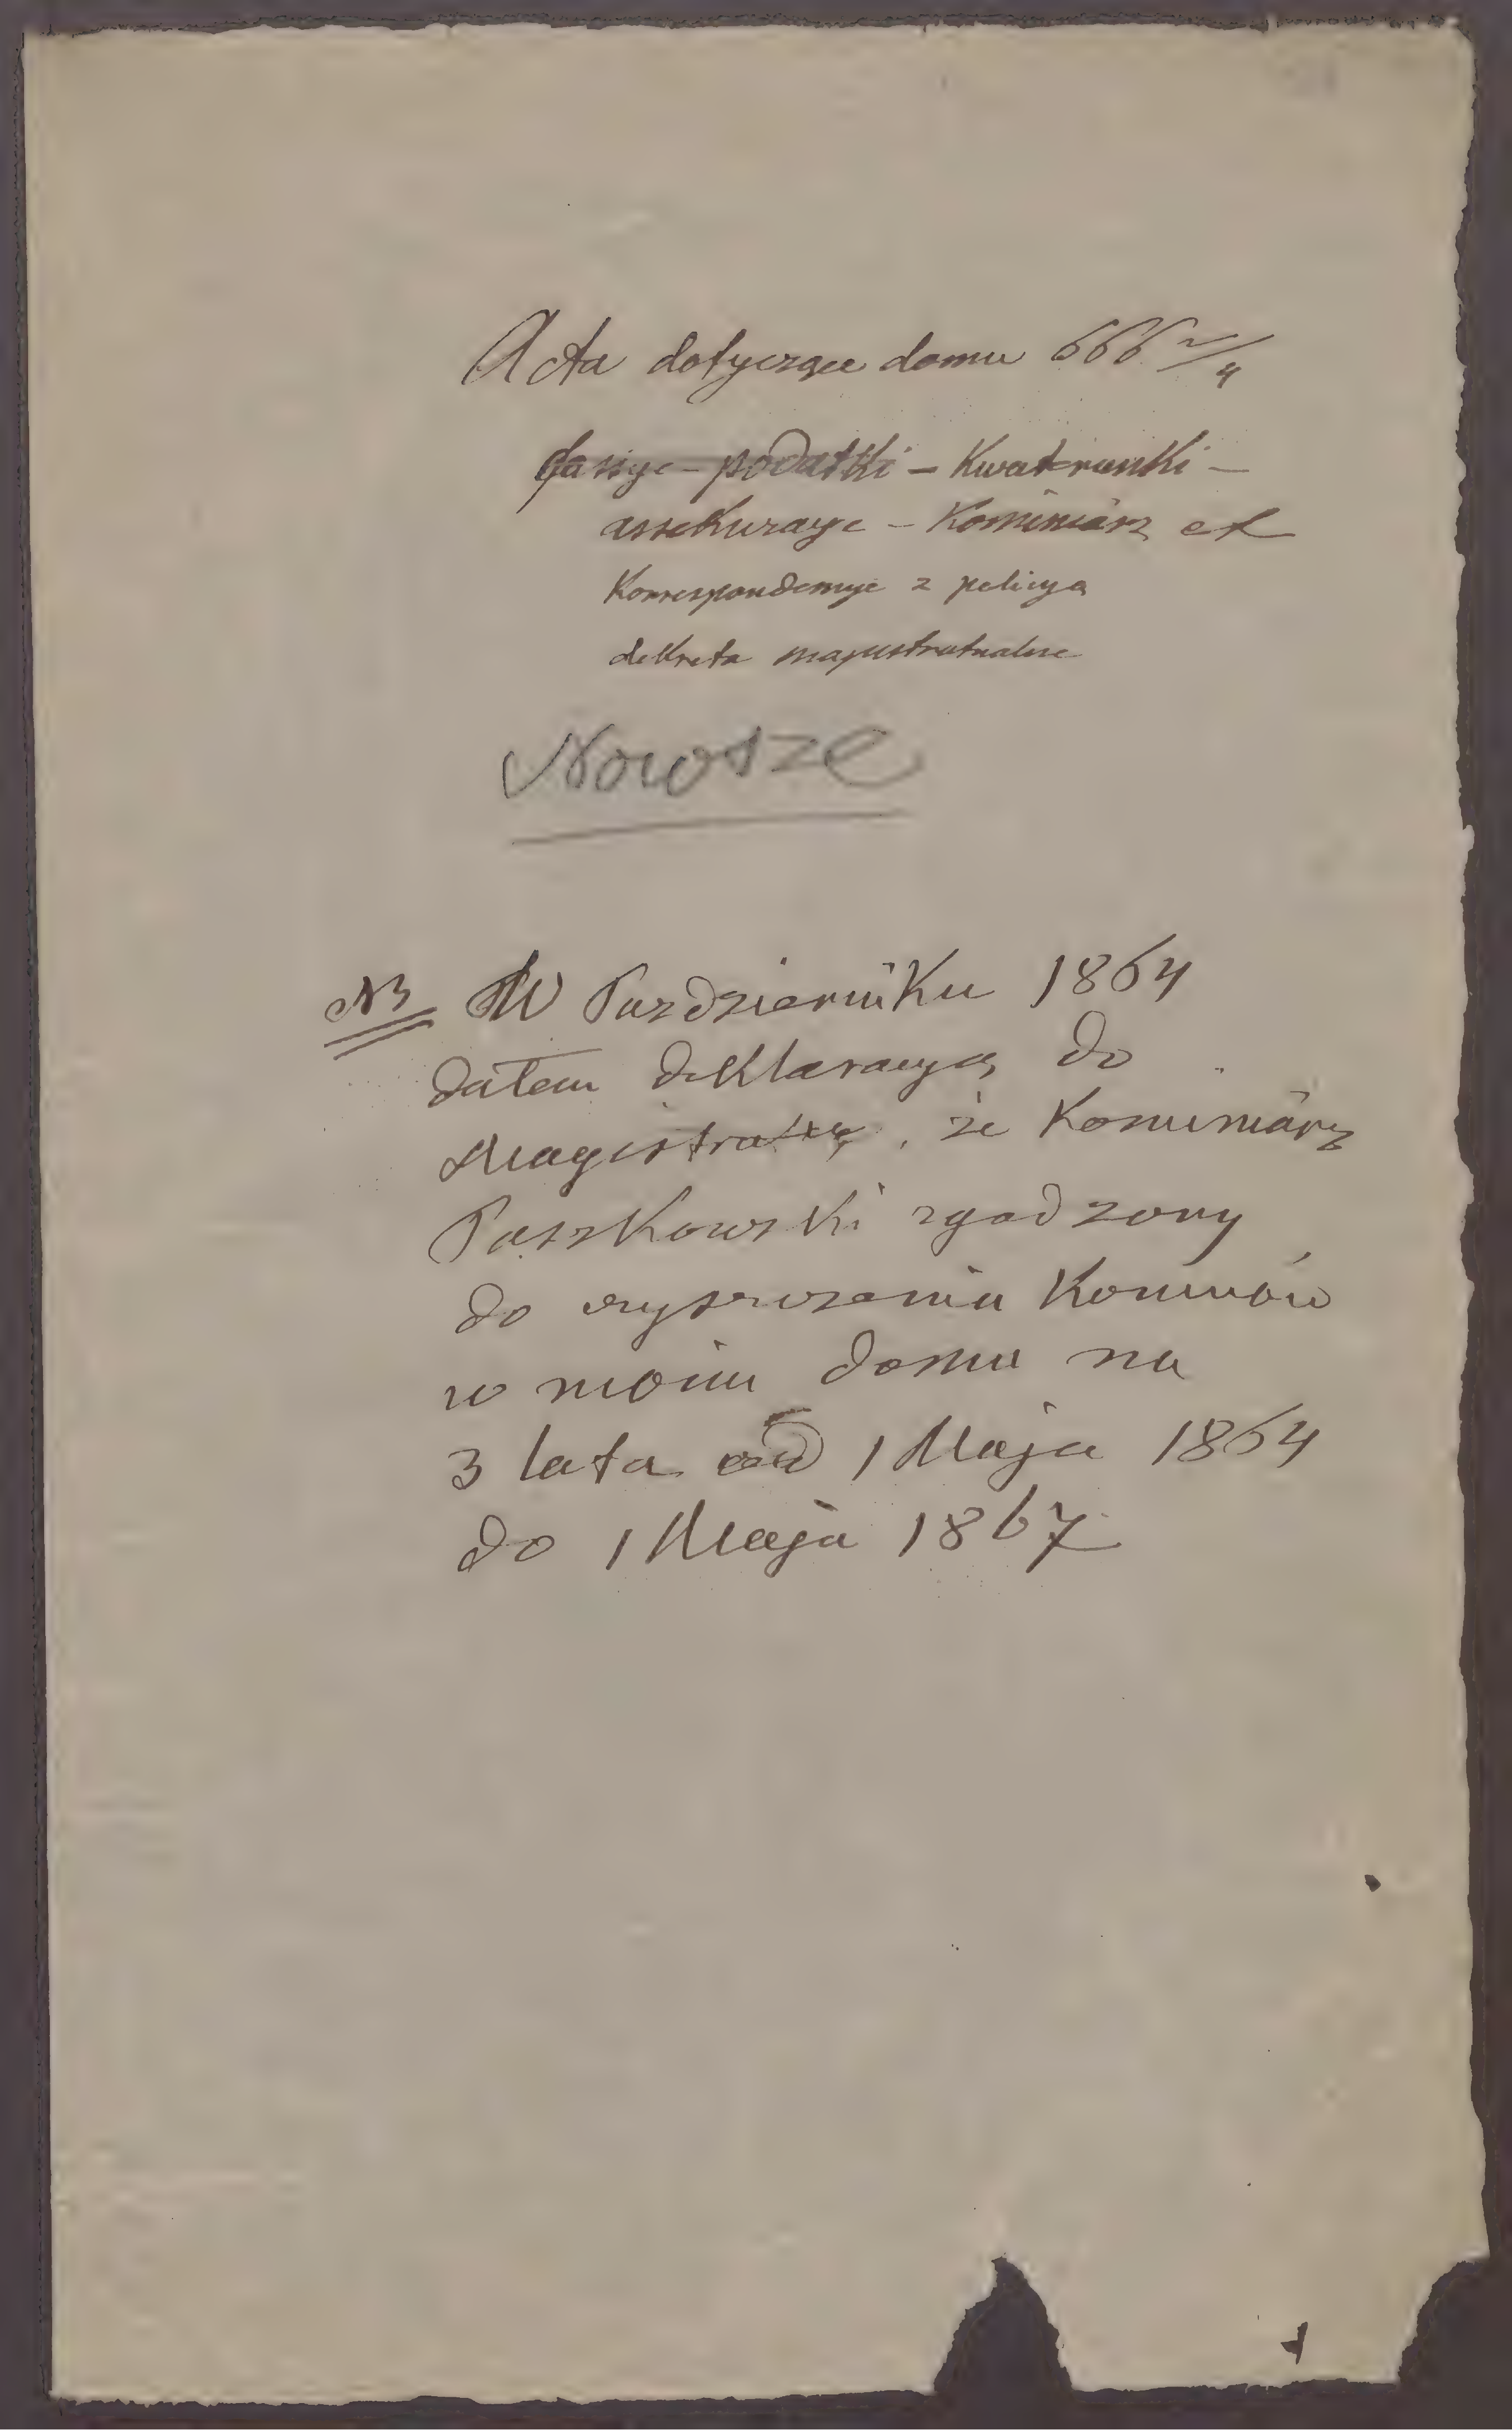 Acta dotyczące domu 666 2/4
fassye - podatki - Kwaterunki -
assekuracye - Kominiarz et
Korrespondencye z policyą
dekreta magistratualne
Nowsze
NB W Pazdzierniku 1864
dałem deklaracyą do
Magistratu, że Kominiarz
Paszkowski zgodzony
do czyszczenia Kominów
w moim domu na
3 lata od 1 Maja 1864
do 1 Maja 1867